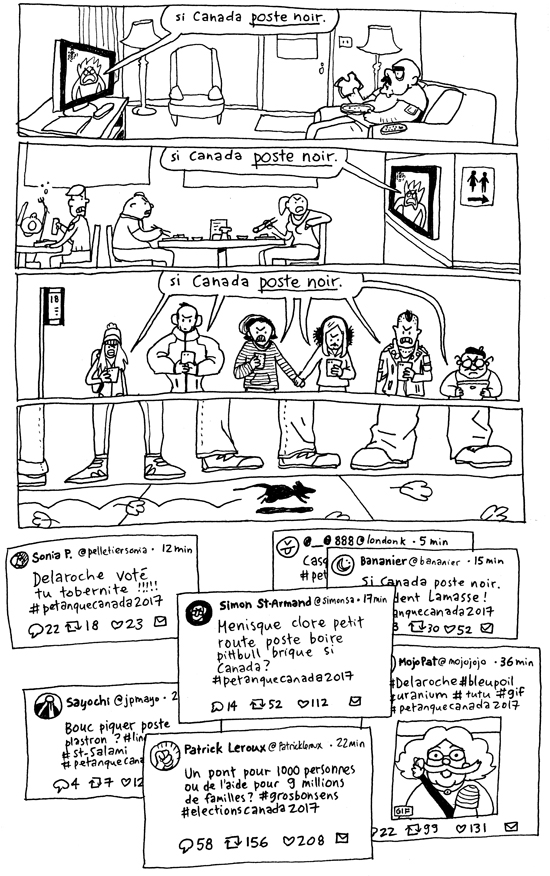 si Canada poste noir.
si Canada poste noir.
si Canada poste noir.
18
Sonia P. @pelletiersonia · 12 min
Delaroche voté
tu tobernite !!!!!
#petanquecanada2017
22 18 23
@__@ 888 @londonk · 5 min
#pet
Bananier @bananier · 15 min
Si Canada poste noir.
dent Lamasse !
anquecanada2017
30 52
Simon St-Armand @simonsa · 17min
Menisque clore petit
route poste boire
pittbull brique si
Canada?
#petanquecanada2017
14 52 112
MojoPat @mojojojo · 36 min
#Delaroche #bleupoil
uranium #tutu #gif
#petanquecanada2017
GIF
22 99 131
Sayochi @jpmayo · 2
Bouc piquer poste
plastron ? #lin
#st-Salami
#petanquecana
4 7 12
Patrick Leroux @Patrickleroux · 22min
Un pont pour 1000 personnes
ou de l'aide pour 9 millions
de familles? #grosbonsens
#electionscanada2017
58 156 208